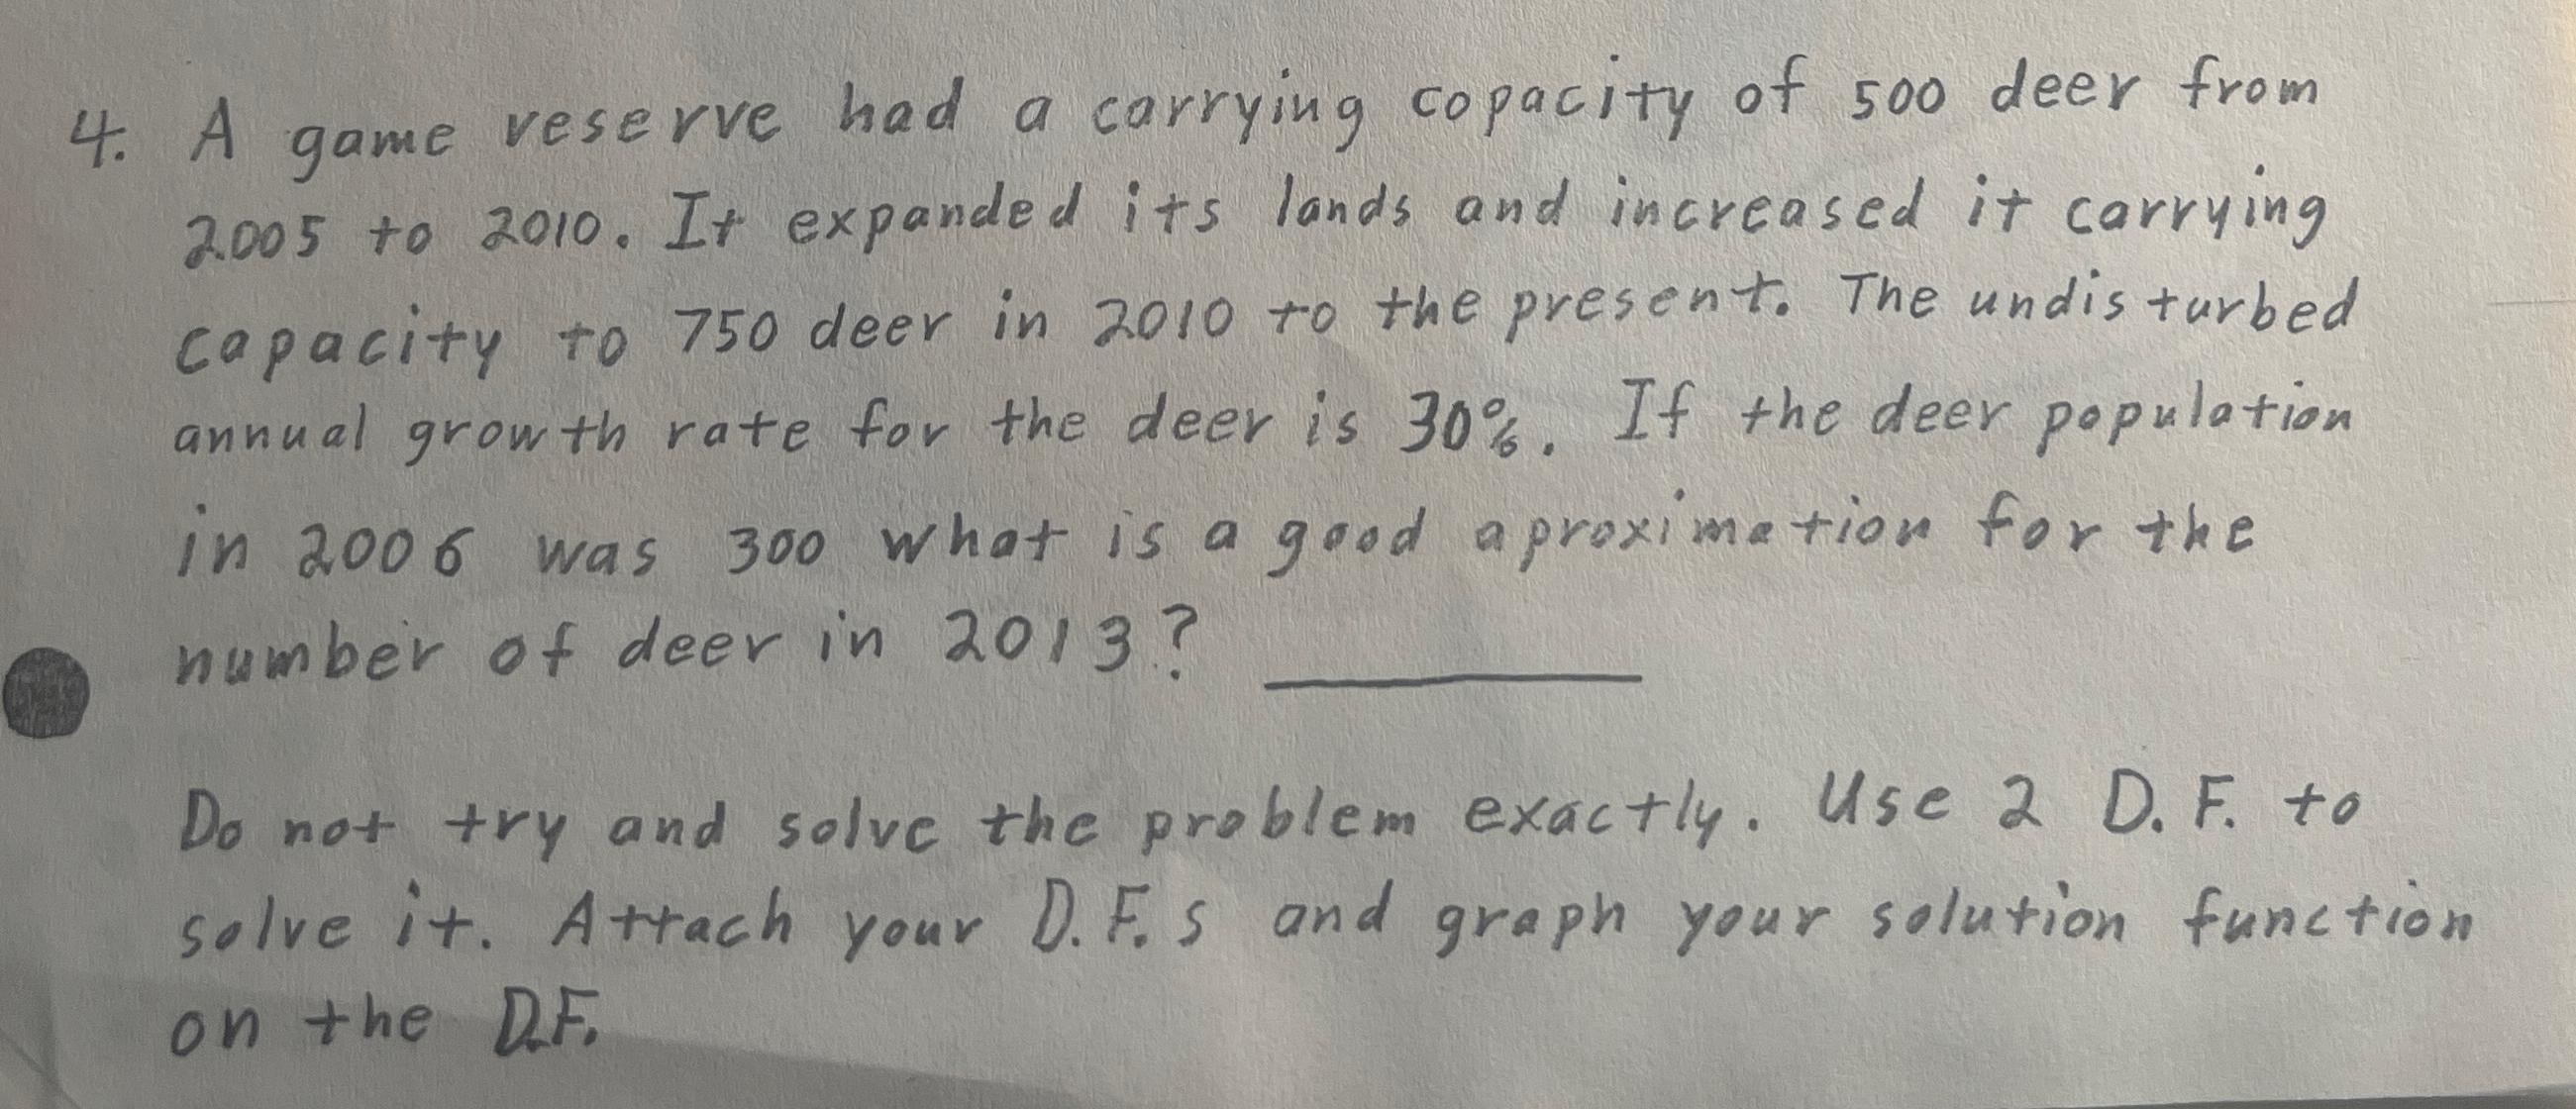 4. A game reserve had a carrying copacity of 500 deer from
2005 to 2010. It expanded its lands and increased it carrying
capacity to 750 deer in 2010 to the present. The undisturbed
annual growth rate for the deer is 30%. If the deer population
in 2006 was 300 what is a good aproximation for the
number of deer in 2013?
Do not try and solve the problem exactly. Use 2 D.F. to
solve it. Attach your D.F.s and graph your solution function
on the D.F.